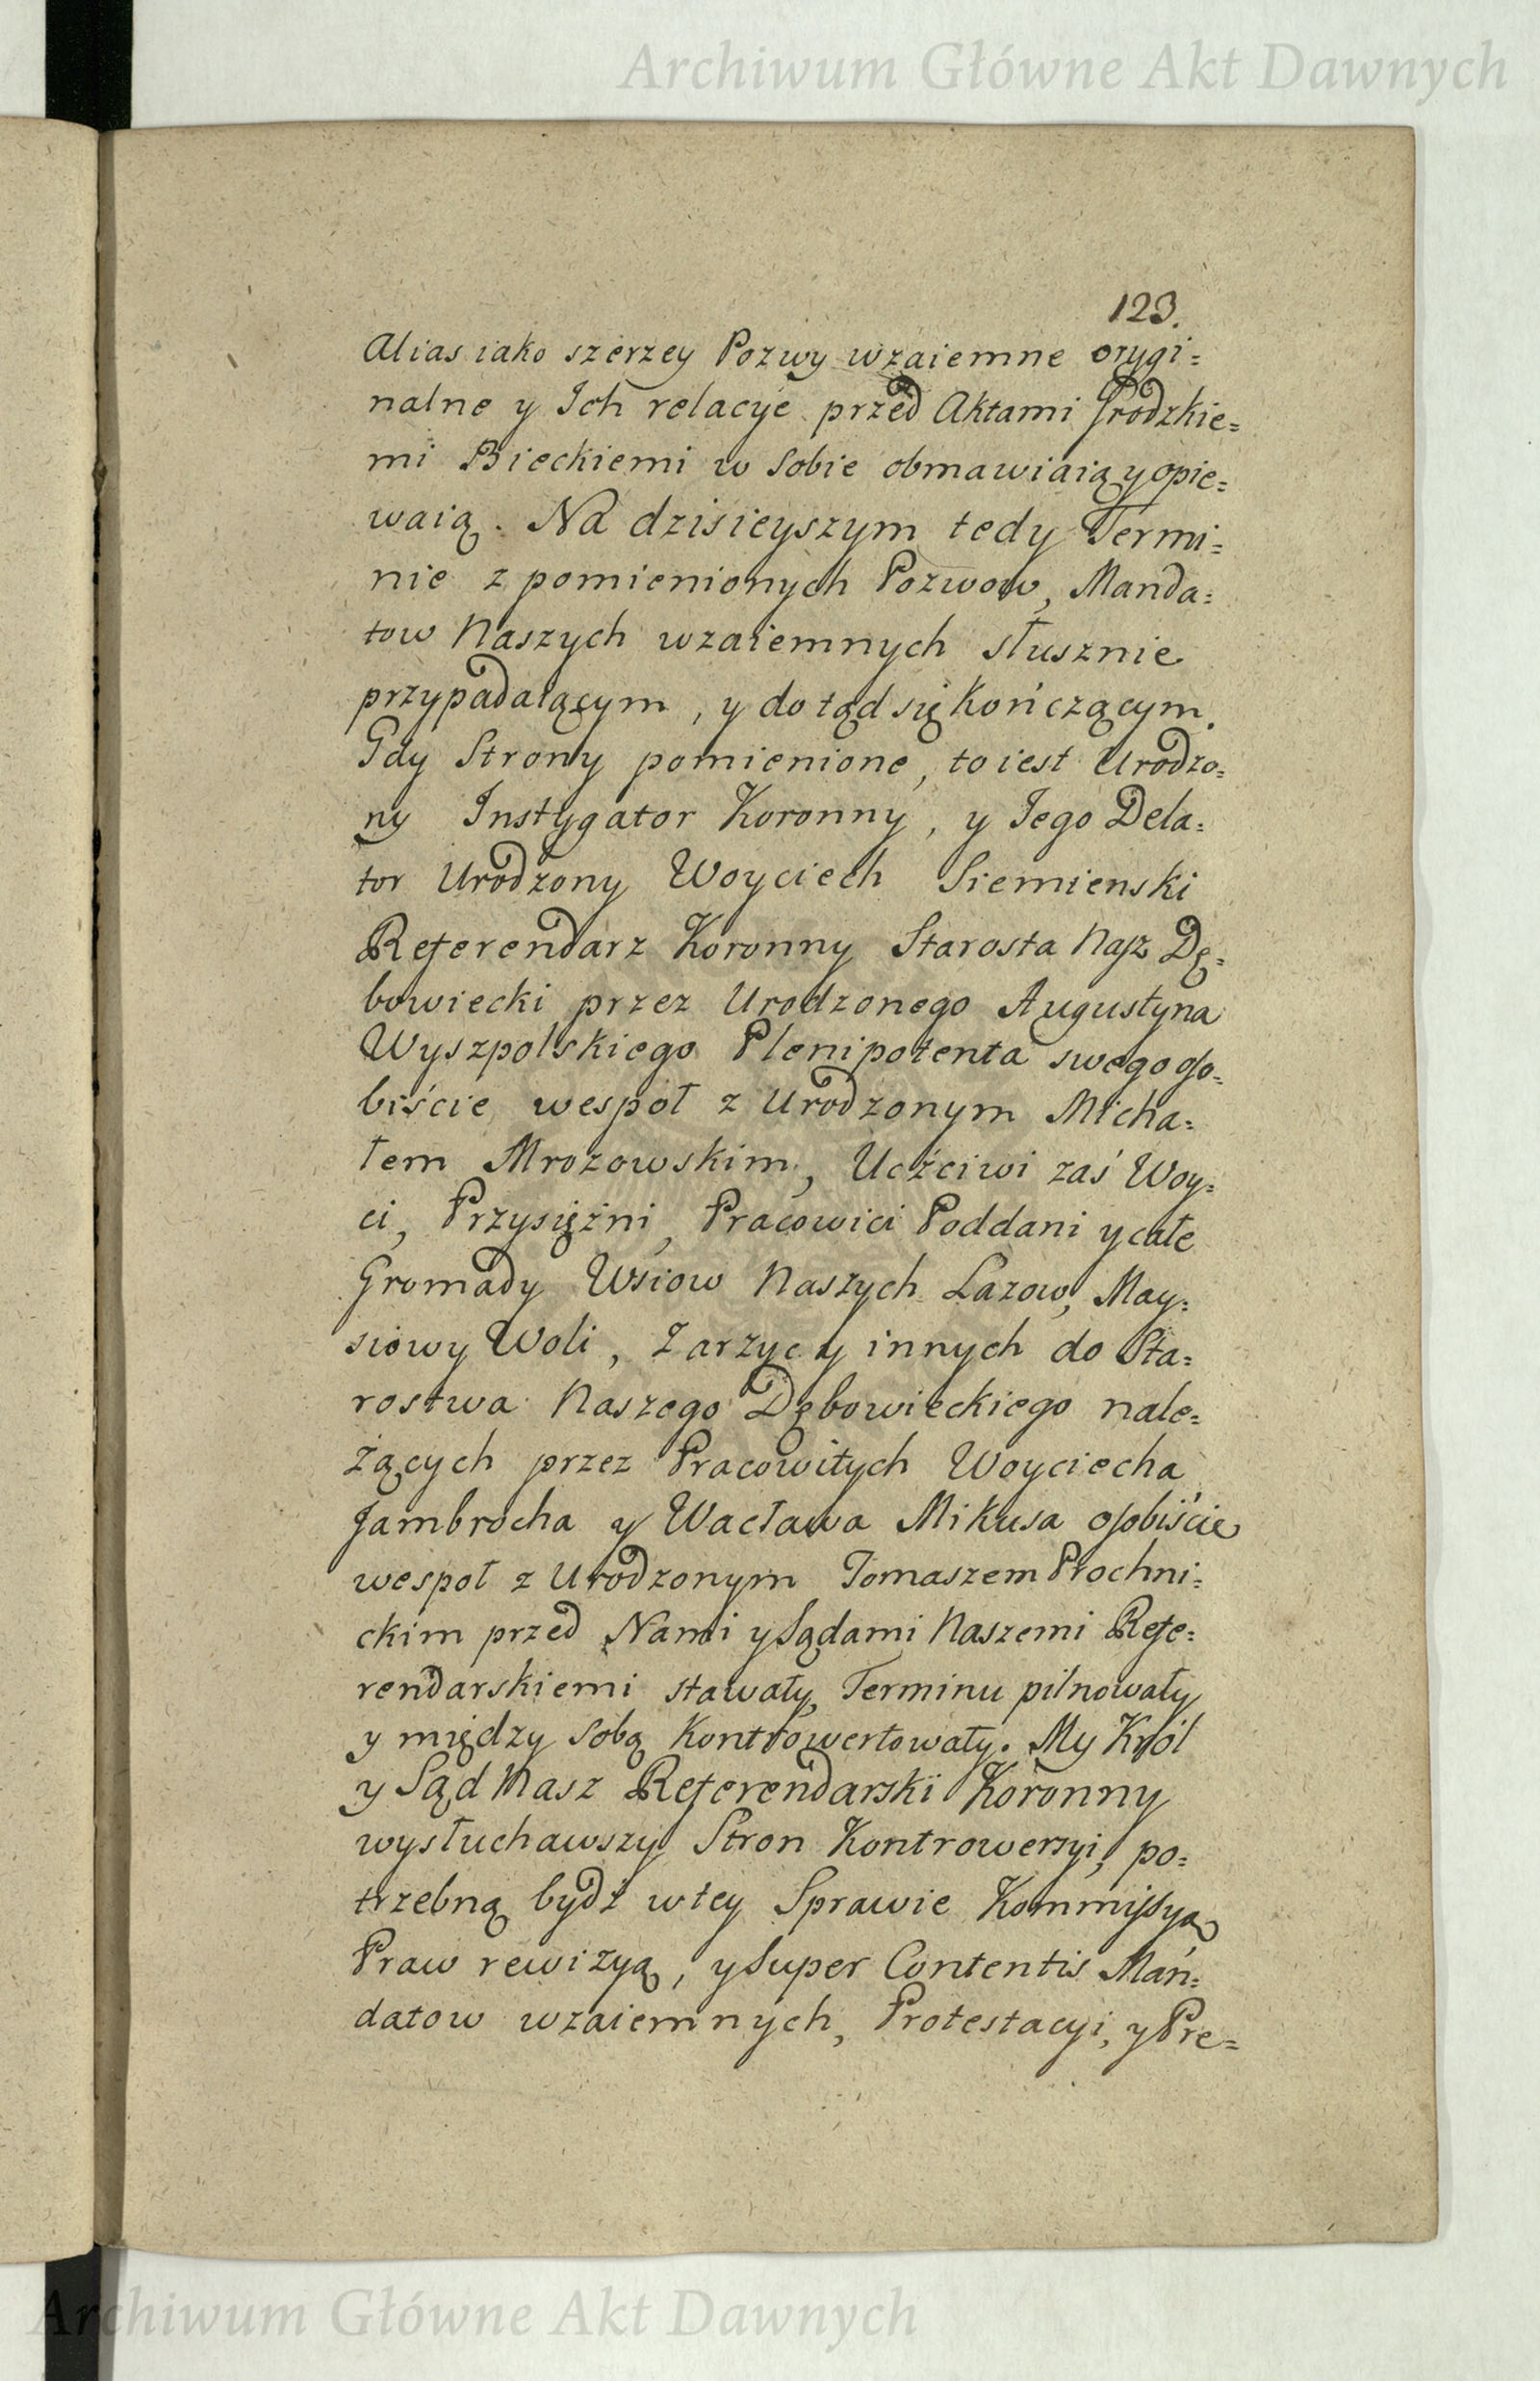 Archiwum Główne Akt Dawnych
123.
Alias iako szerzey Pozwy wzaiemne orygi=
nalne y Ich relacye przed Aktami Grodzkie=
mi Bieckiemi w Sobie obmawiaią y opie=
waią. Na dzisieyszym tedy Termi=
nie z pomienionych Pozwow, Manda=
tow Naszych wzaiemnych słusznie
przypadaiącym, y do tąd się kończącym.
Gdy Strony pomienione, to iest Urodzo=
ny Instygator Koronny, y Jego Dela=
tor Urodzony Woyciech Siemienski
Referendarz Koronny Starosta Nasz Dę=
bowiecki przez Urodzonego Augustyna
Wyszpolskiego Plenipotenta swego oso=
biście wespoł z Urodzonym Micha=
łem Mrozowskim, Uczciwi zaś Woy=
ci, Przysiężni, Pracowici Poddani y całe
Gromady Wsiow Naszych Łazow, May=
siowy Woli, Zarzyc y innych do Sta=
rostwa Naszego Dębowieckiego nale=
żących przez Pracowitych Woyciecha
Jambrocha y Wacława Mikusa osobiście
wespoł z Urodzonym Tomaszem Prochni=
ckim przed Nami y Sądami Naszemi Refe=
rendarskiemi stawały, Terminu pilnowały
y między Sobą Kontrowertowały. My Król
y Sąd Nasz Referendarski Koronny
wysłuchawszy Stron Kontrowersyi, po=
trzebną bydź w tey Sprawie Kommissyą
Praw rewizyą, y Super Contentis Man=
datow wzaiemnych, Protestacyi, y Pre=
Archiwum Główne Akt Dawnych